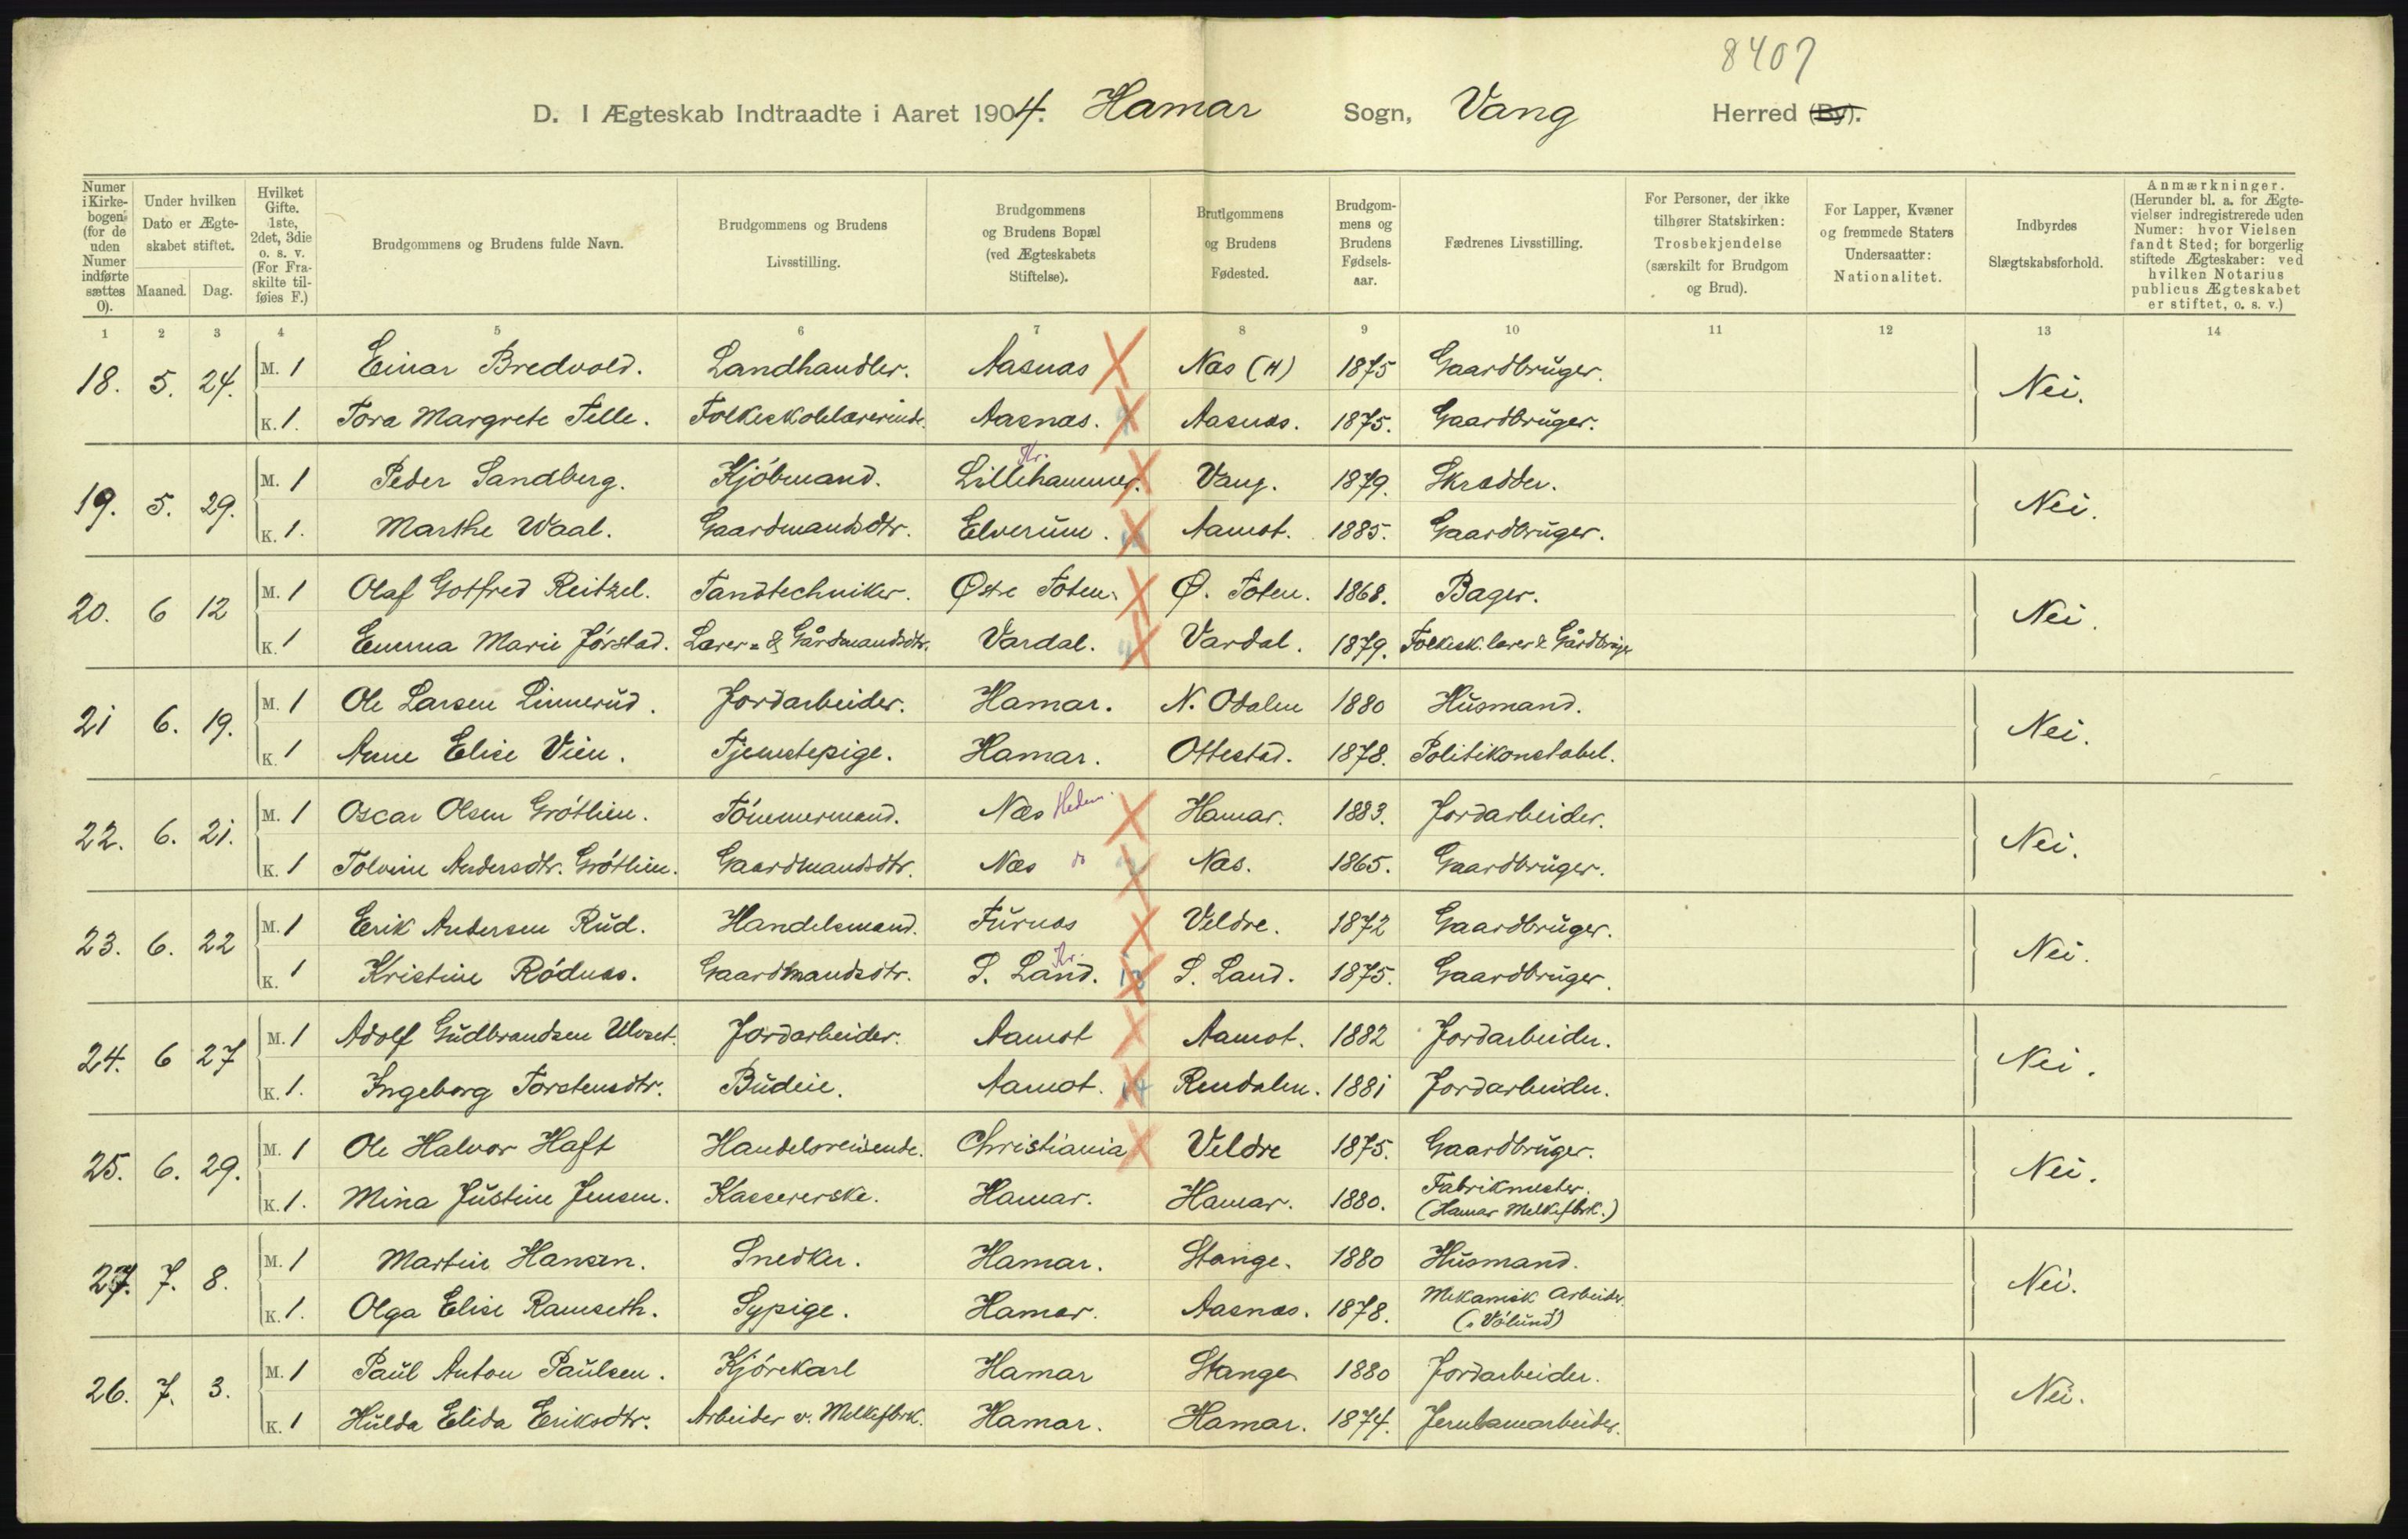 8407
D. I Ægteskab Indtraadte i Aaret 1904. Hamar Sogn, Vang Herred (By).
Numer i Kirkebogen (for de uden Numer indførte sættes 0).
Under hvilken Dato er Ægteskabet stiftet.
Maaned. Dag.
Hvilket Gifte. 1ste, 2det, 3die o. s. v. (For Fraskilte tilføies F.)
Brudgommens og Brudens fulde Navn.
Brudgommens og Brudens Livsstilling.
Brudgommens og Brudens Bopæl (ved Ægteskabets Stiftelse).
Brudgommens og Brudens Fødested.
Brudgommens og Brudens Fødselsaar.
Fædrenes Livsstilling.
For Personer, der ikke tilhører Statskirken: Trosbekjendelse (særskilt for Brudgom og Brud).
For Lapper, Kvæner og fremmede Staters Undersaatter: Nationalitet.
Indbyrdes Slægtskabsforhold.
Anmærkninger. (Herunder bl. a. for Ægtevielser indregistrerede uden Numer: hvor Vielsen fandt Sted; for borgerlig stiftede Ægteskaber: ved hvilken Notarius publicus Ægteskabet er stiftet, o. s. v.)
1 2 3 4 5 6 7 8 9 10 11 12 13 14
18. 5. 24. M. 1 Einar Bredvold. Landhandler. Aasnæs Næs (H) 1875 Gaardbruger. Nei.
K. 1. Tora Margrete Telle. Folkeskolelærerinde. Aasnæs. Aasnæs. 1875. Gaardbruger.
19. 5. 29. M. 1 Peder Sandberg. Kjöbmand. Lillehammer. Kr. Vang. 1879. Skrædder. Nei.
K. 1. Marthe Waal. Gaardmandsdtr. Elverum. Aamot. 1885. Gaardbruger.
20. 6 12 M. 1 Olaf Gotfred Reitzel. Tandtechniker. Østre Toten. Ø. Toten. 1868. Bager. Nei.
K. 1 Emma Marie Jørstad. Lærer= & Gårdmandsdtr. Vardal. Vardal. 1879. Folkesk.lærer & Gårdbruger
21 6. 19. M. 1 Ole Larsen Linnerud. Jordarbeider. Hamar. N. Odalen 1880 Husmand. Nei.
K. 1 Anne Elise Vien. Tjenstepige. Hamar. Ottestad. 1878. Politikonstabel.
22. 6. 21. M. 1 Oscar Olsen Gröthien. Tömmermand. Næs Hedm. Hamar. 1883. Jordarbeider. Nei.
K. 1 Tolvine Andersdtr. Gröthien. Gaardmandsdtr. Næs do Næs. 1865. Gaardbruger.
23. 6. 22 M. 1 Erik Andersen Rud. Handelsmand. Furnæs Veldre. 1872 Gaardbruger. Nei.
K. 1 Kristine Rödnæs. Gaardmandsdtr. S. Land. Kr. 13 S. Land. 1875. Gaardbruger.
24. 6 27 M. 1 Adolf Gudbrandsen Ulvset. Jordarbeider. Aamot Aamot. 1882 Jordarbeider. Nei.
K. 1. Ingeborg Torstensdtr. Budeie. Aamot. 14 Rendalen. 1881 Jordarbeider.
25. 6. 29. M. 1 Ole Halvor Haft Handelsreisende. Christiania Veldre 1875. Gaardbruger. Nei.
K. 1. Mina Justine Jensen. Kassererske. Hamar. Hamar. 1880. Fabrikmester. (Hamar Melkefbrk.)
27. 7. 8. M. 1 Martin Hansen. Snedker. Hamar. Stange. 1880 Husmand. Nei.
K. 1. Olga Elise Ramseth. Sypige. Hamar. Aasnæs. 1878. Mekanisk Arbeider. (v Völund)
26. 7. 3. M. 1 Paul Anton Paulsen. Kjörekarl Hamar Stange 1880 Jordarbeider. Nei.
K. 1 Hulda Elida Eriksdtr. Arbeider v. Melkefbrk. Hamar. Hamar. 1874. Jernbanearbeider.